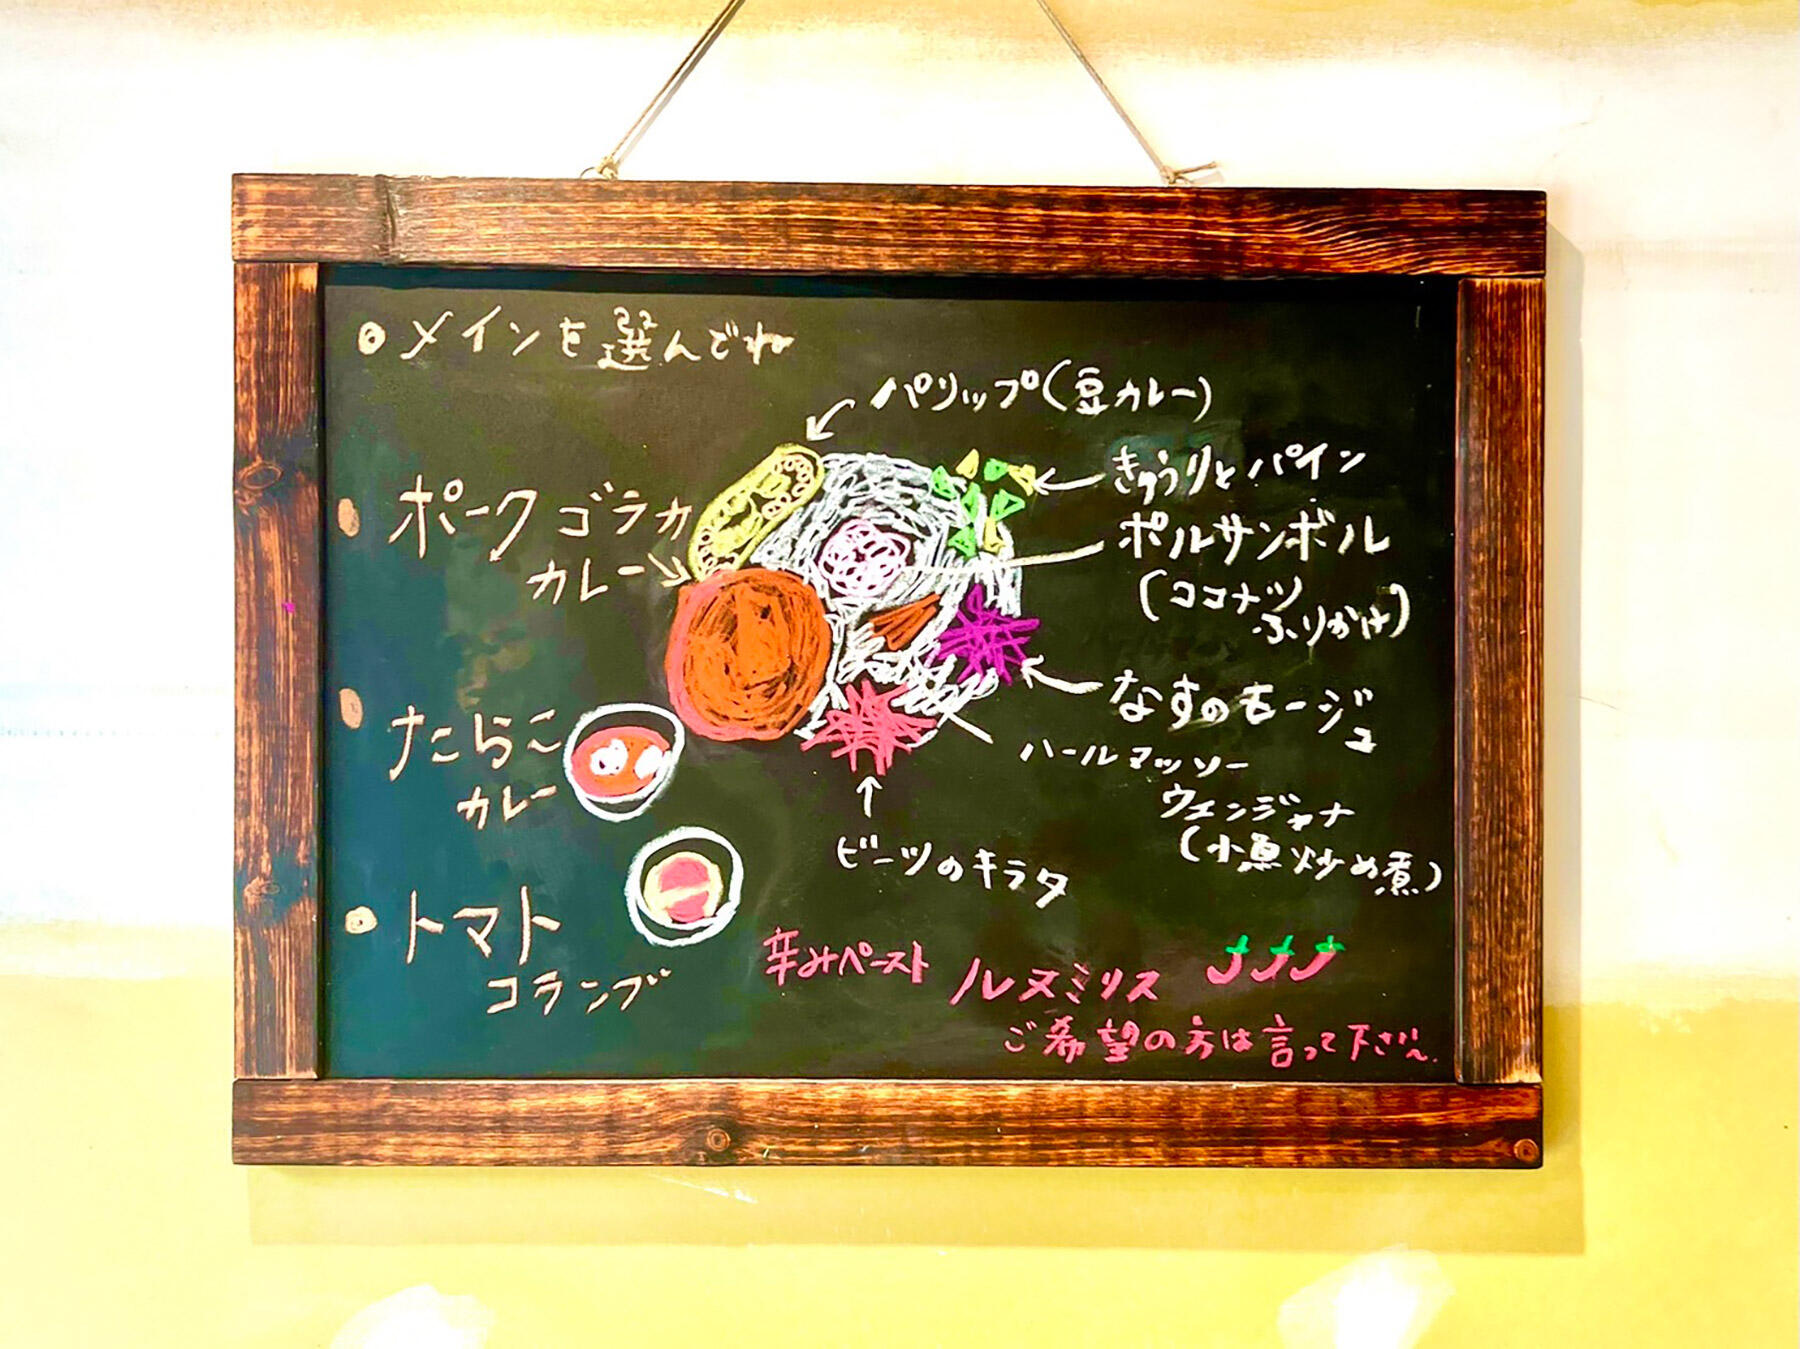 メインを選んでね
パリップ(豆カレー)
きゅうりとパイン
ポークゴラカ
カレー
ポルサンボル
(ココナツ
ふりかけ)
なすのモージュ
たらこ
カレー
ハールマッソー
ウェンジャナ
(小魚炒め煮)
ビーツのキラタ
トマト
コランブ
辛みペースト ルヌミリス
ご希望の方は言って下さい。